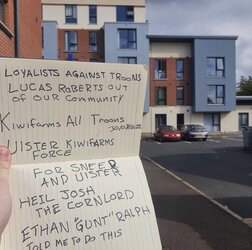 LOYALISTS AGAINST TROONS
LUCAS ROBERTS OUT
OF OUR COMMUNITY
Kiwifarms All Troons
30/08/22
ULSTER KIWIFARMS
FORCE
FOR SNEED
AND ULSTER
HEIL JOSH
THE CORNLORD
ETHAN "GUNT" RALPH
TOLD ME TO DO THIS